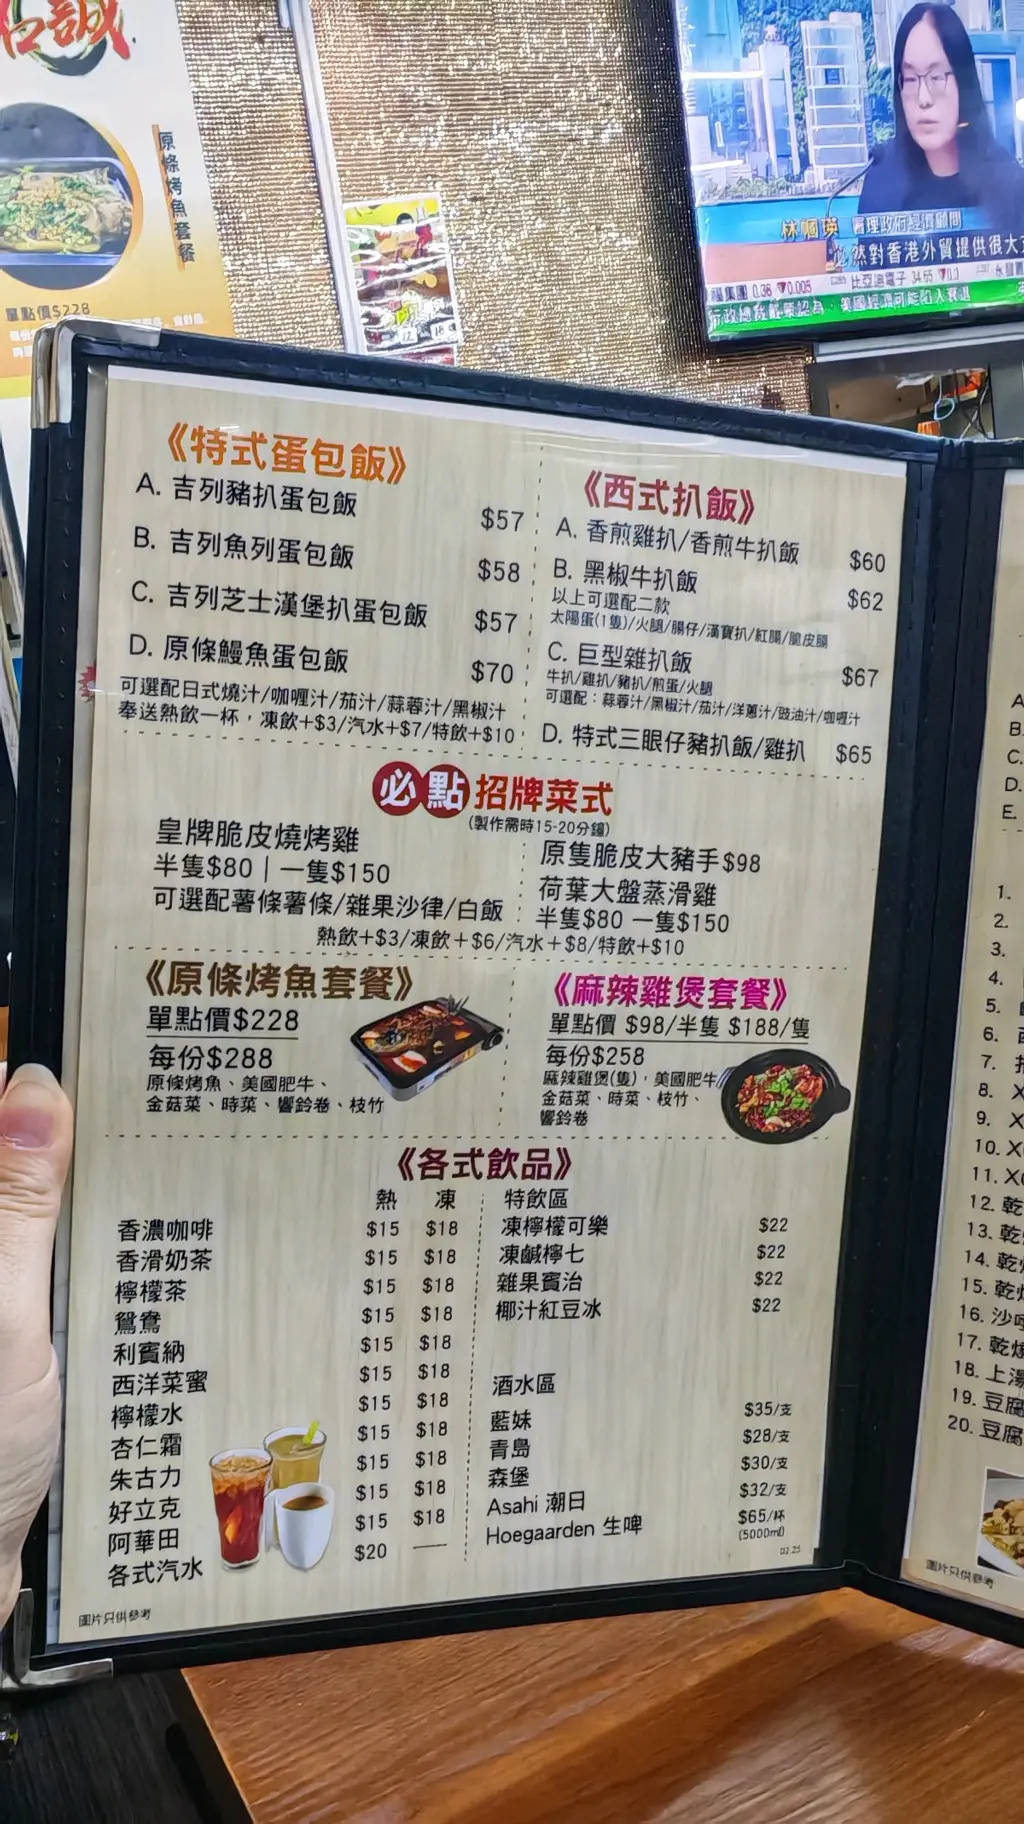 原條烤魚套餐
單點價$228
林楓瑛 署理政府經濟顧問
必然對香港外貿提供很大
《特式蛋包飯》
A. 吉列豬扒蛋包飯 $57
B. 吉列魚列蛋包飯 $58
C. 吉列芝士漢堡扒蛋包飯 $57
D. 原條鰻魚蛋包飯 $70
可選配日式燒汁/咖喱汁/茄汁/蒜蓉汁/黑椒汁
奉送熱飲一杯，凍飲+$3/汽水+$7/特飲+$10
《西式扒飯》
A. 香煎雞扒/香煎牛扒飯 $60
B. 黑椒牛扒飯 $62
以上可選配二款
太陽蛋(1隻)/火腿/腸仔/漢寶扒/紅腸/脆皮腸
C. 巨型雜扒飯 $67
牛扒/雞扒/豬扒/煎蛋/火腿
可選配：蒜蓉汁/黑椒汁/茄汁/洋蔥汁/豉油汁/咖喱汁
D. 特式三眼仔豬扒飯/雞扒 $65
必點 招牌菜式
(製作需時15-20分鐘)
皇牌脆皮燒烤雞
半隻$80｜一隻$150
可選配薯條薯條/雜果沙律/白飯
原隻脆皮大豬手$98
荷葉大盤蒸滑雞
半隻$80 一隻$150
熱飲+$3/凍飲+$6/汽水+$8/特飲+$10
《原條烤魚套餐》
單點價$228
每份$288
原條烤魚、美國肥牛、
金菇菜、時菜、響鈴卷、枝竹
《麻辣雞煲套餐》
單點價 $98/半隻 $188/隻
每份$258
麻辣雞煲(隻)，美國肥牛
金菇菜、時菜、枝竹、
響鈴卷
《各式飲品》
熱 凍
香濃咖啡 $15 $18
香滑奶茶 $15 $18
檸檬茶 $15 $18
鴛鴦 $15 $18
利賓納 $15 $18
西洋菜蜜 $15 $18
檸檬水 $15 $18
杏仁霜 $15 $18
朱古力 $15 $18
好立克 $15 $18
阿華田 $15 $18
各式汽水 $20 —
特飲區
凍檸檬可樂 $22
凍鹹檸七 $22
雜果賓治 $22
椰汁紅豆冰 $22
酒水區
藍妹 $35/支
青島 $28/支
森堡 $30/支
Asahi 潮日 $32/支
Hoegaarden 生啤 $65/杯
(5000ml)
03.25
圖片只供參考
A
B.
C.
D.
E.
1.
2.
3.
4.
5.
6.
7.
8. X
9. X
10. X
11. X
12. 乾
13. 乾
14. 乾
15. 乾
16. 沙
17. 乾
18. 上湯
19. 豆腐
20. 豆腐
圖片只供參考